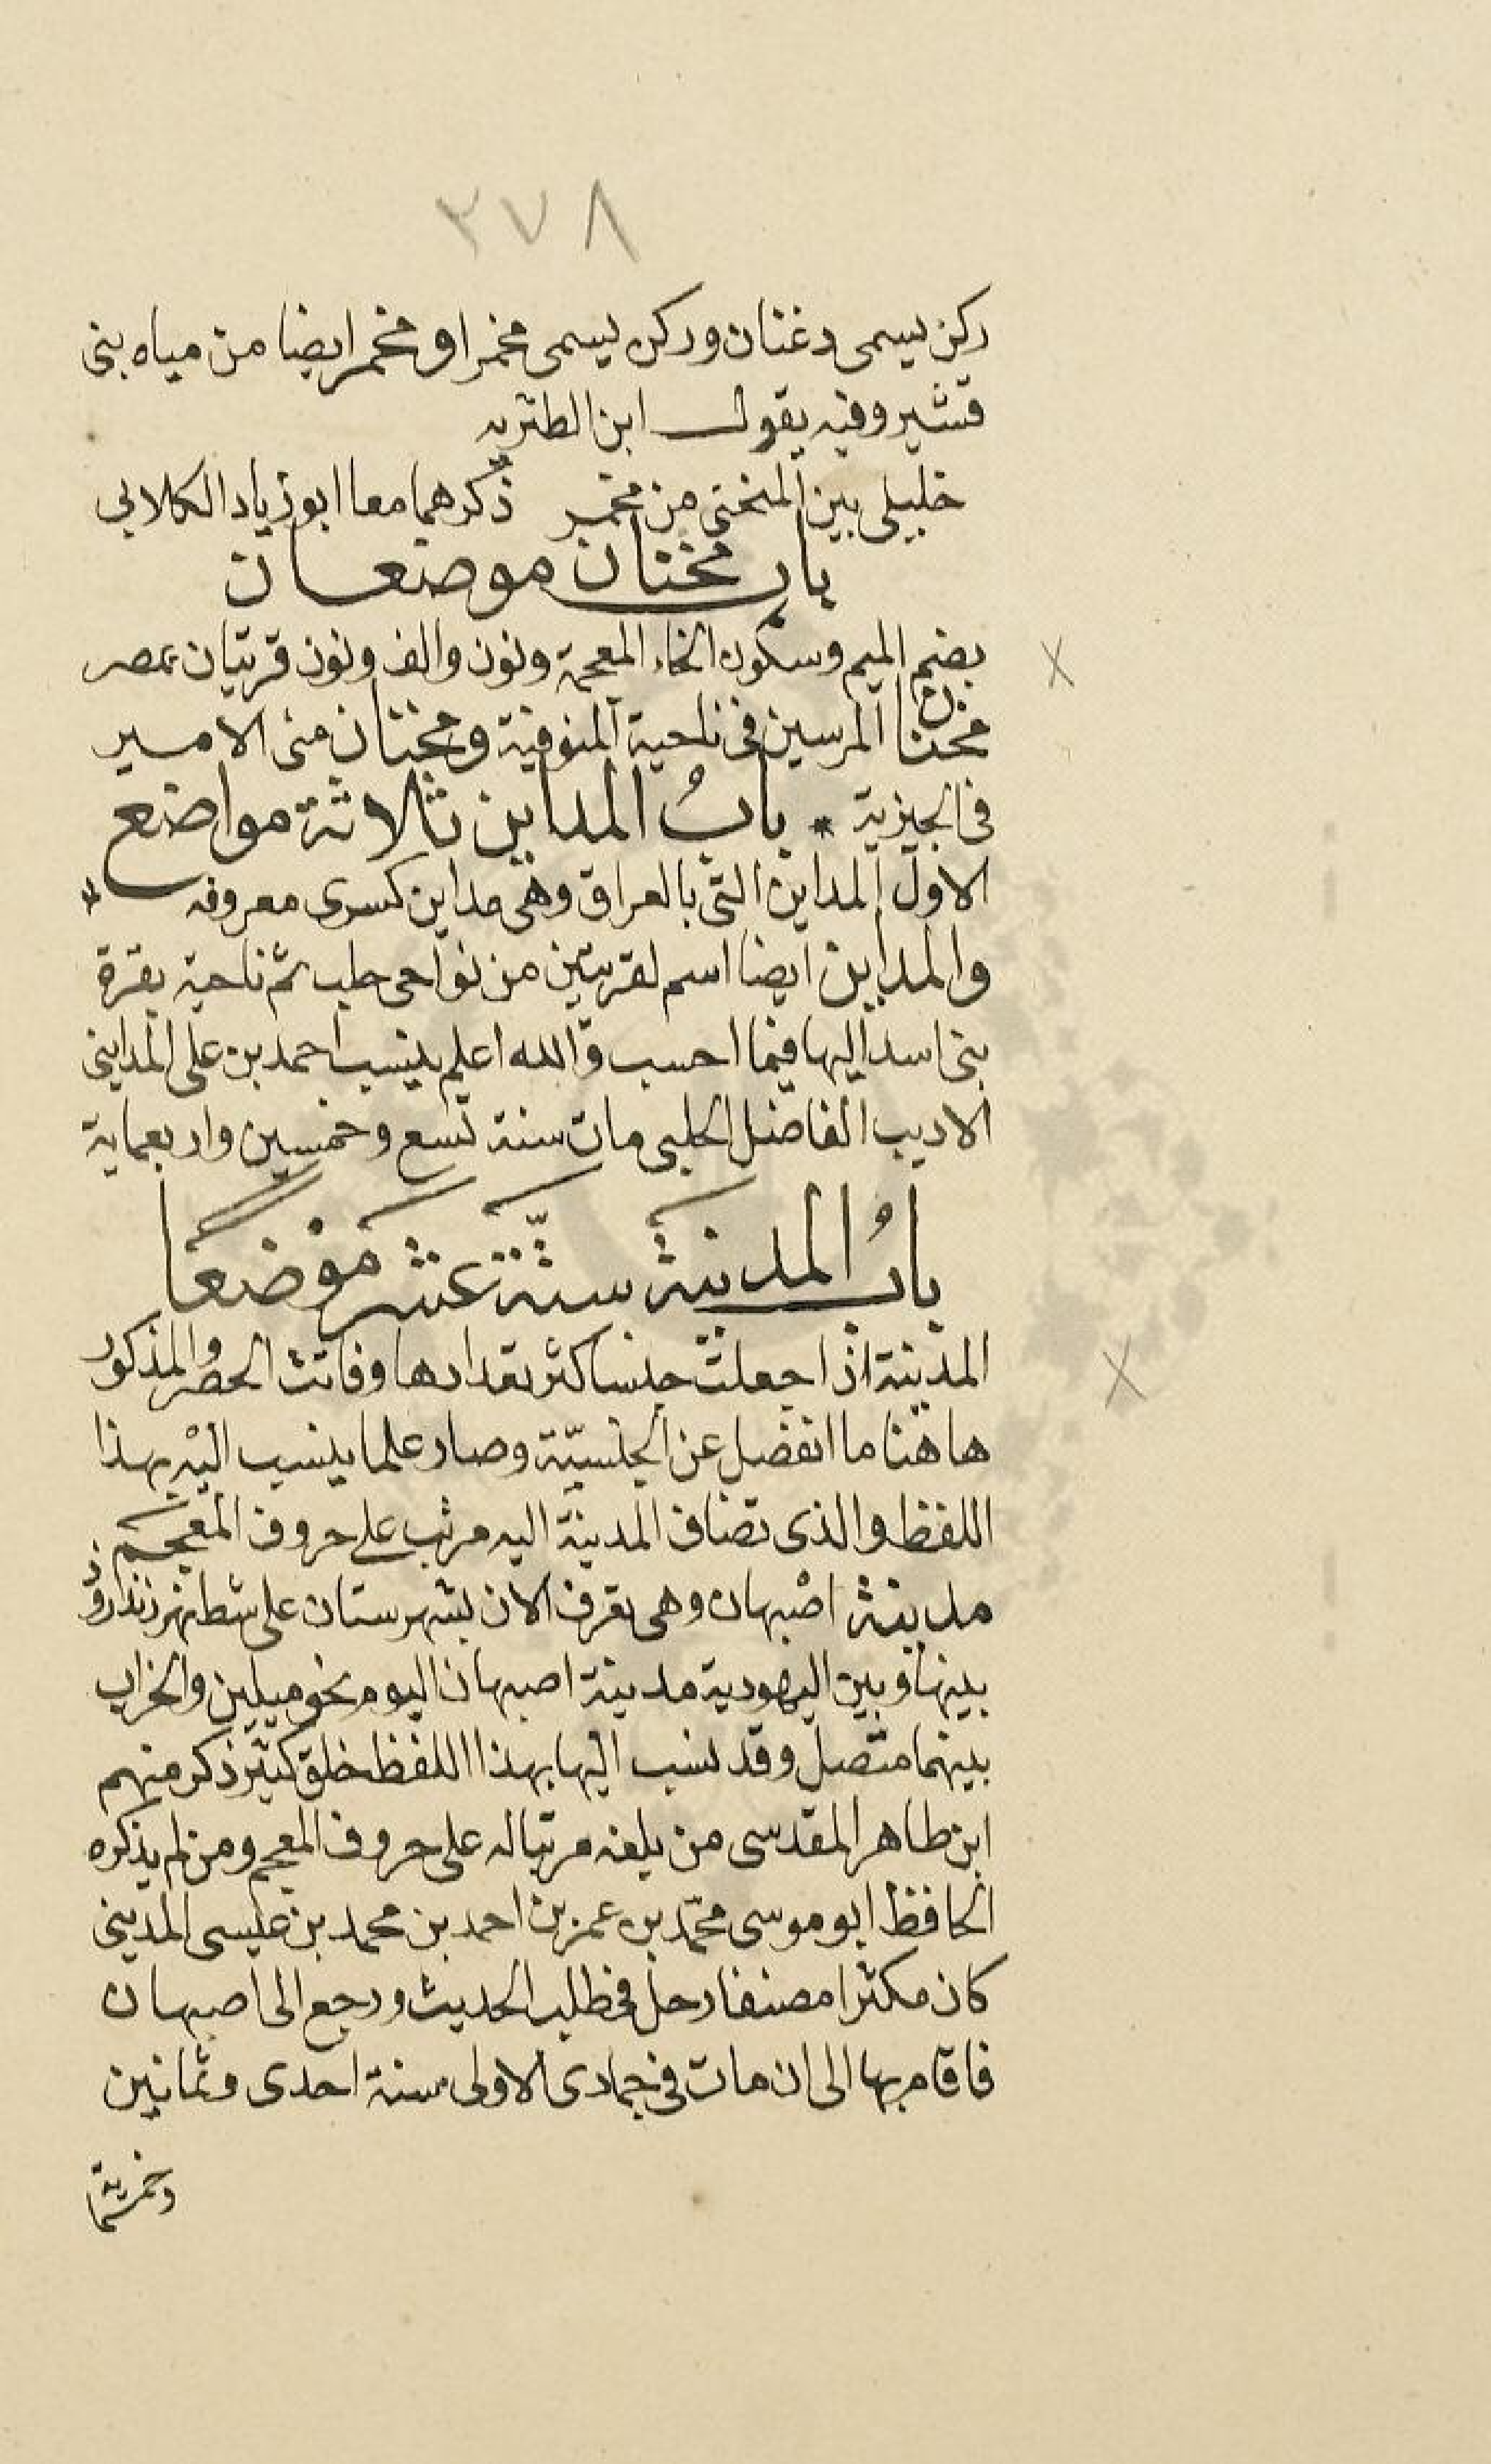 ٣٧٨
ركن يسمى دغنان وركن يسمى مخمرا ومخمر ايضا من مياه بنى
قشير وفيه يقول ابن الطثريه
خليلى بين المنحنى من مخمر ذكرهما معا ابو زياد الكلابي
باب مخنان موضعان
بضم الميم وسكون الخاء المعجمة ونون والف ونون قريتان بمصر
مخنان المرسين فى ناحية المنوفية ومخنان منى الامير
فى الجيزية * باب المداين ثلاثة مواضع
الاول المداين التى بالعراق وهى مداين كسرى معروفه
والمداين ايضا اسم لقريتين من نواحى حلب ثم ناحية بقرة
بنى اسد اليها فيما احسب والله اعلم ينسب احمد بن على المداينى
الاديب الفاضل الحلبى مات سنة تسع وخمسين واربعماية
باب المدينة ستة عشر موضعا
المدينة اذا جعلت جنسا كثر تعدادها وفاتت الحصر والمذكور
هاهنا ما انفصل عن الجنسيّة وصار علما ينسب اليه بهذا
اللفظ والذى تضاف المدينة اليه مرتب على حروف المعجم
مدينة اصبهان وهى تعرف الان بشهرستان على شط نهر زندروذ
بينها وبين اليهودية مدينة اصبهان اليوم نحو ميلين والخراب
بينهما متصل وقد نسب اليها بهذا اللفظ خلق كثير ذكر منهم
ابن طاهر المقدسى من بلغه مرتبا له على حروف المعجم ومن لم يذكره
الحافظ ابو موسى محمّد بن عمر بن احمد بن محمد بن عيسى المدينى
كان مكثرا مصنفا رحل فى طلب الحديث ورجع الى اصبهان
فاقام بها الى ان مات فى جمادى الاولى سنة احدى وثمانين
وخمسماية